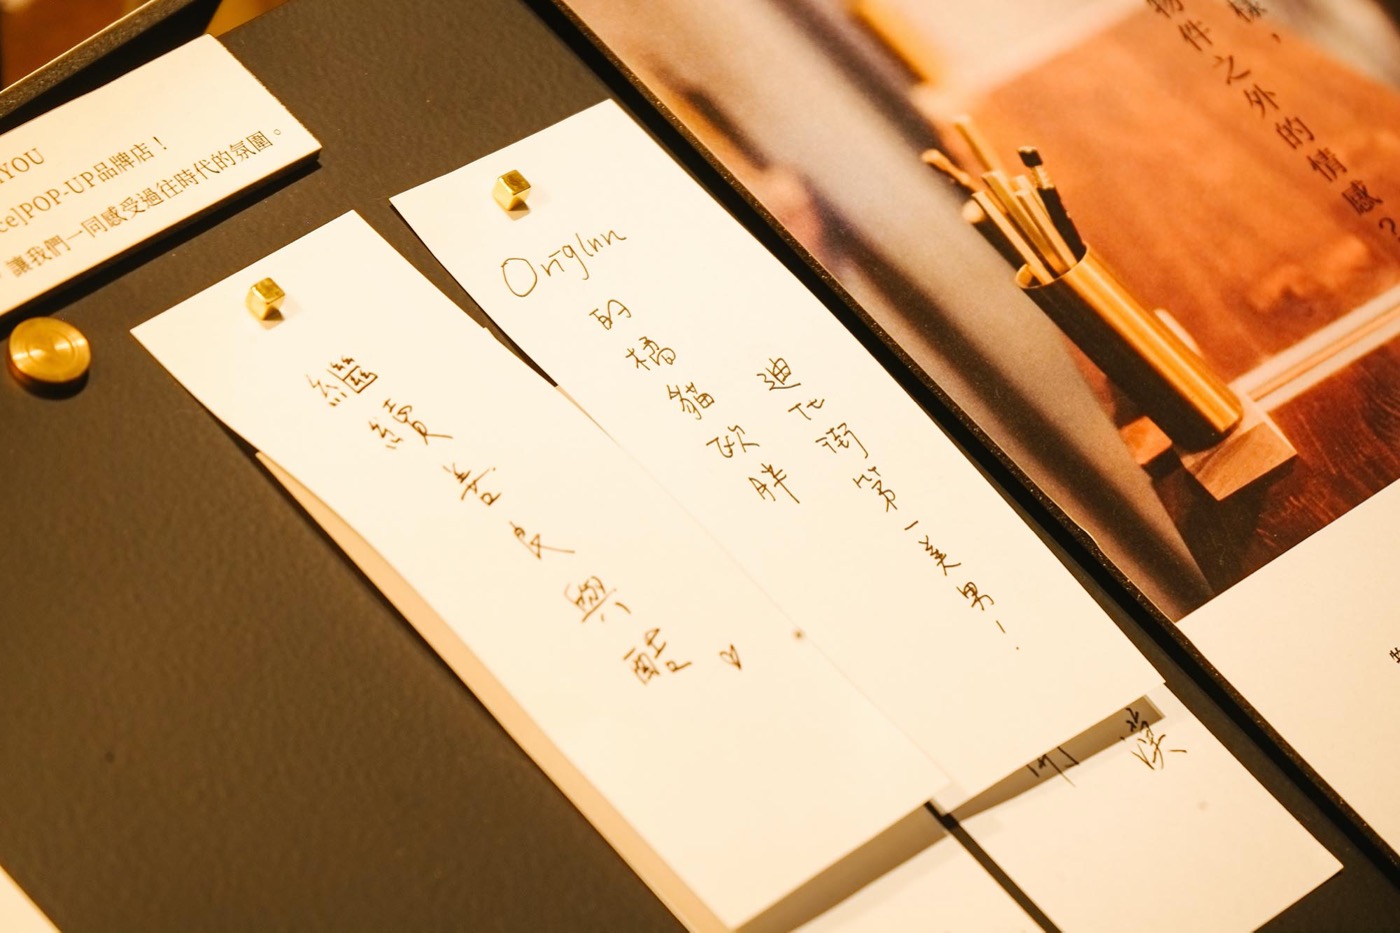 YOU
ce|POP-UP品牌店！
讓我們一同感受過往時代的氛圍。
繼續善良與酷♡
OrigInn的橘貓歐胖
迪化街第一美男！
樣，
物件之外的情感？